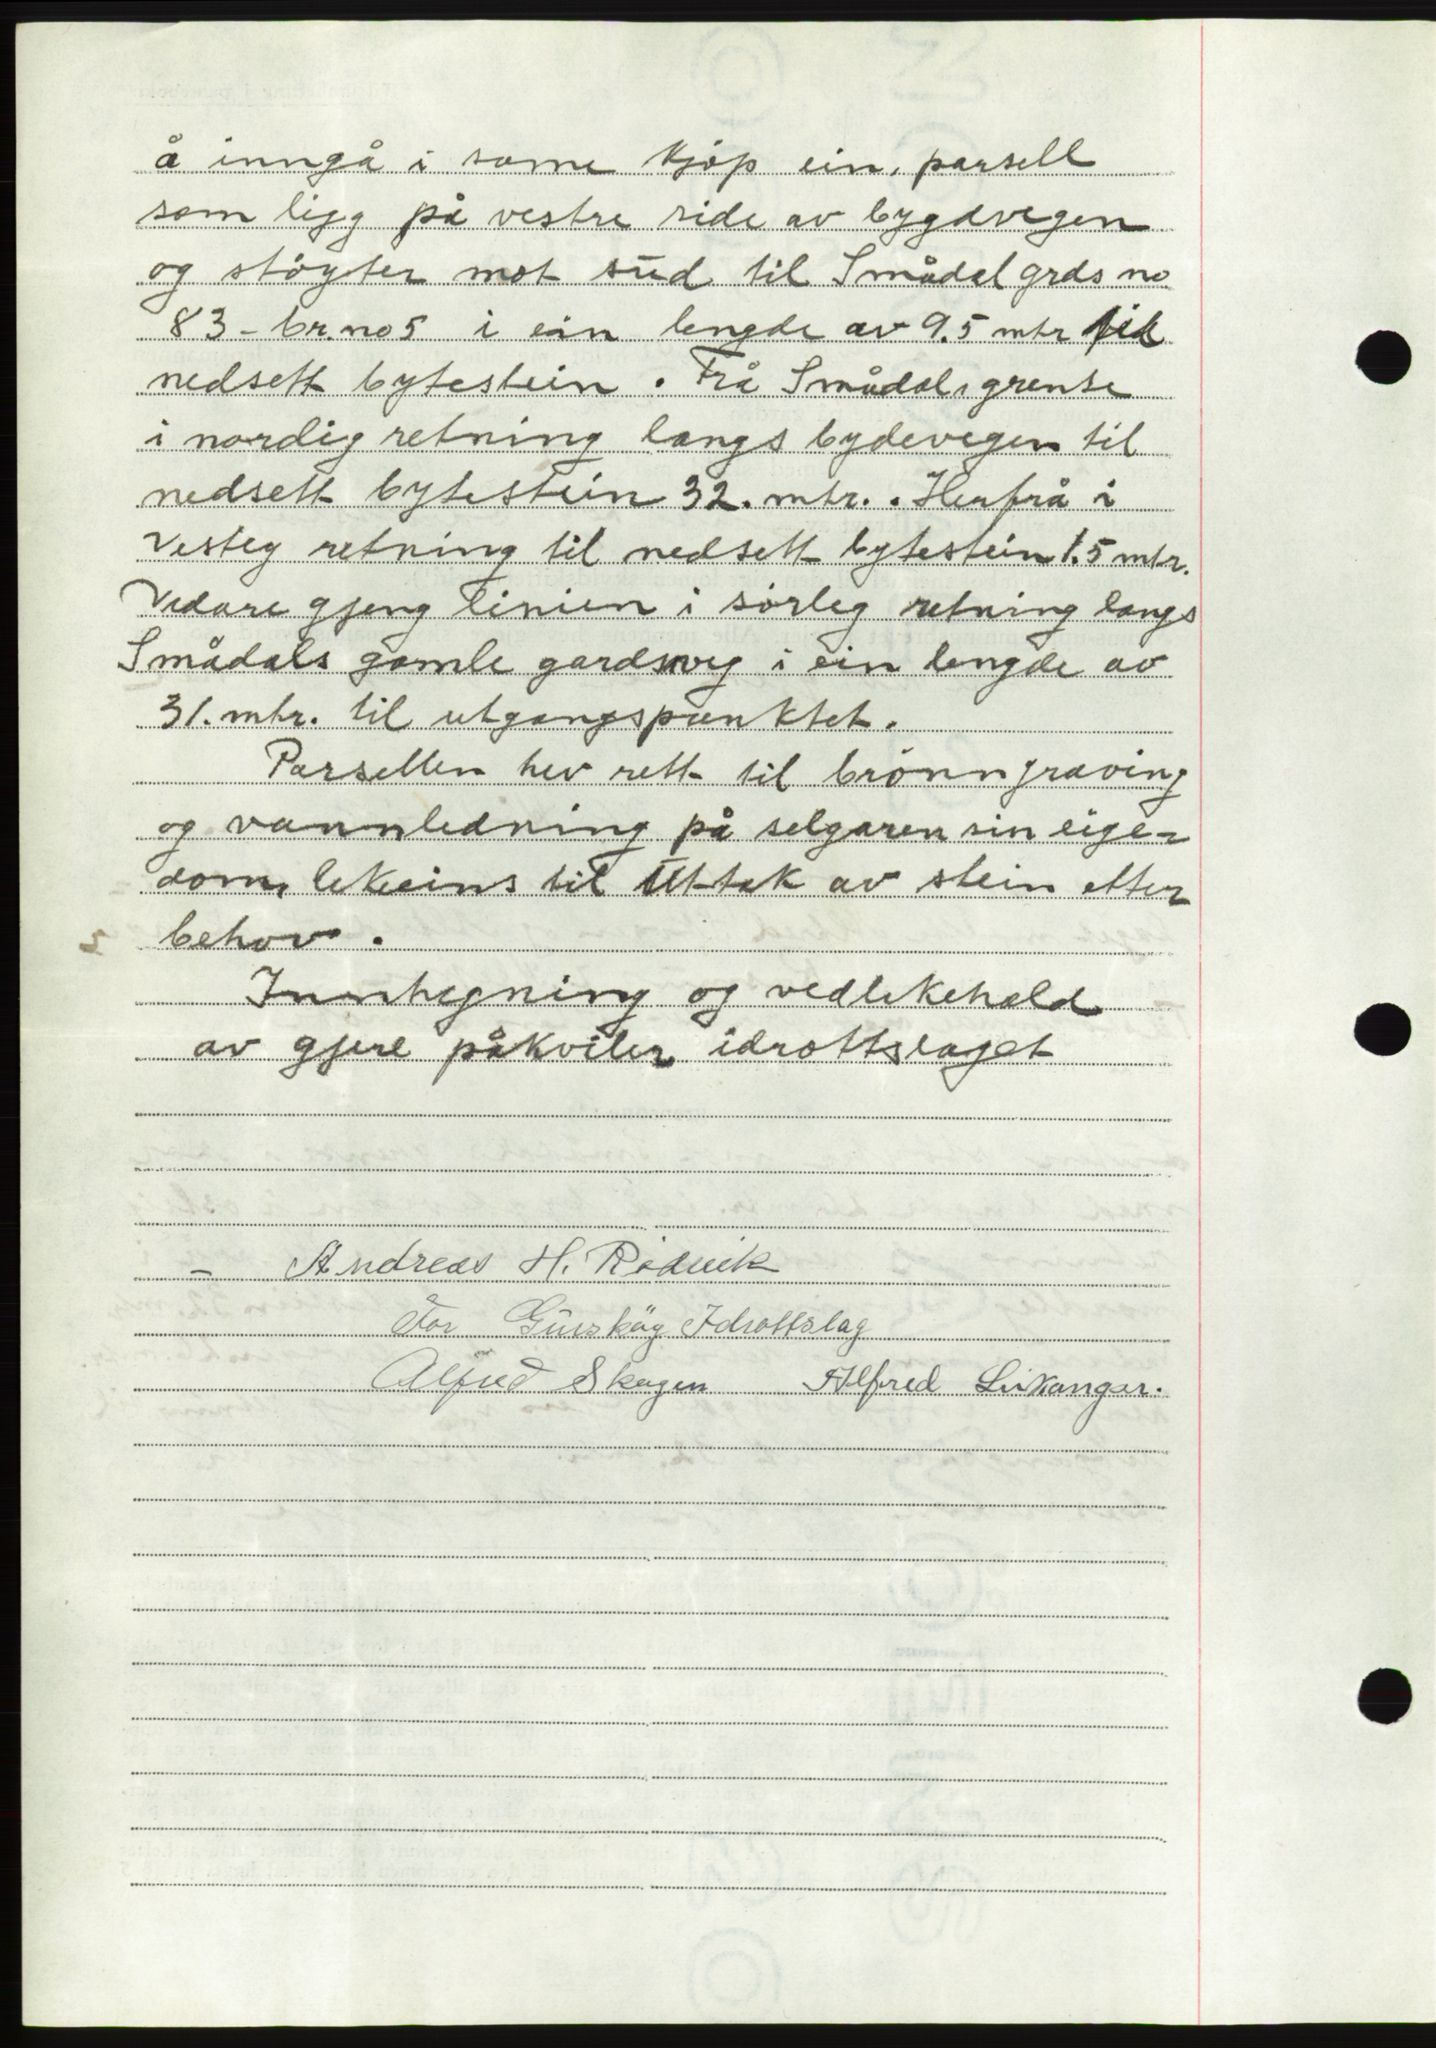 å inngå i same kjøp ein, parsell
som ligg på vestre side av bygdvegen
og støyter mot sud til Smådal grds no
83 - br. no 5 i ein lengde av 9.5 mtr til
nedsett bytestein. Frå Smådals grense
i nordig retning langs bydevegen til
nedsett bytestein 32. mtr. . Herfrå i
Vesteg retning til nedsett bytestein 1.5 mtr.
Vidare gjeng linien i sørleg retning langs
Smådals gamle gardsveg i ein lengde av
31. mtr. til utgangspunktet.
Parsellen hev rett til brønngraving
og vannledning på selgaren sin eige-
dom, lekeeins til Uttak av stein etter
behov.
Innhegning og vedlikehald
av gjere påkviler idrottslaget
- Andreas H. Rødvik
For Gurskøy Idrottslag
Alfred Skagen Alfred Leikanger.